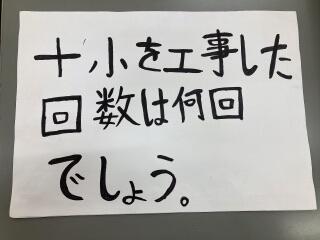 十小を工事した
回数は何回
でしょう。